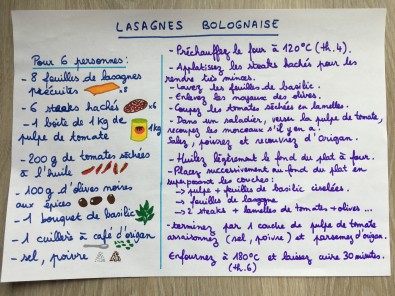 LASAGNES BOLOGNAISE
Pour 6 personnes :
- 8 feuilles de lasagnes
précuites
x8
- 6 steaks hachés
x6
- 1 boîte de 1 kg de
pulpe de tomate
1kg
- 200 g de tomates séchées
à l'huile
- 100 g d'olives noires
aux épices
- 1 bouquet de basilic
- 1 cuillère à café d'origan
- sel, poivre
- Préchauffez le four à 120°C (th.4).
- Applatissez les steaks hachés pour les
rendre très minces.
- Lavez les feuilles de basilic.
- Enlevez les noyaux des olives.
- Coupez les tomates séchées en lamelles.
- Dans un saladier, verser la pulpe de tomate,
recoupez les morceaux s'il y en a.
Salez, poivrez et recouvrez d'origan.
- Huilez légèrement le fond du plat à four.
- Placez successivement au fond du plat en
superposant les couches :
→ pulpe + feuilles de basilic ciselées.
→ feuilles de lasagne
→ 2 steaks + lamelles de tomates + olives ...
- terminez par 1 couche de pulpe de tomate
assaisonnez (sel, poivre) et parsemez d'origan.
Enfournez à 180°C et laissez cuire 30 minutes.
(th.6)